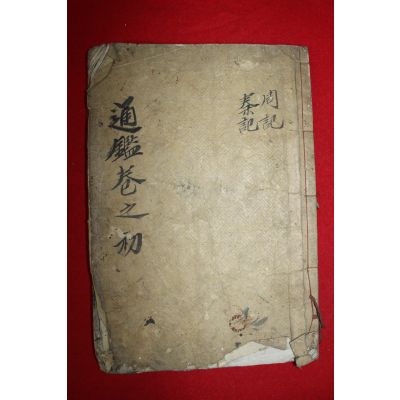 周記
秦記
通鑑卷之初